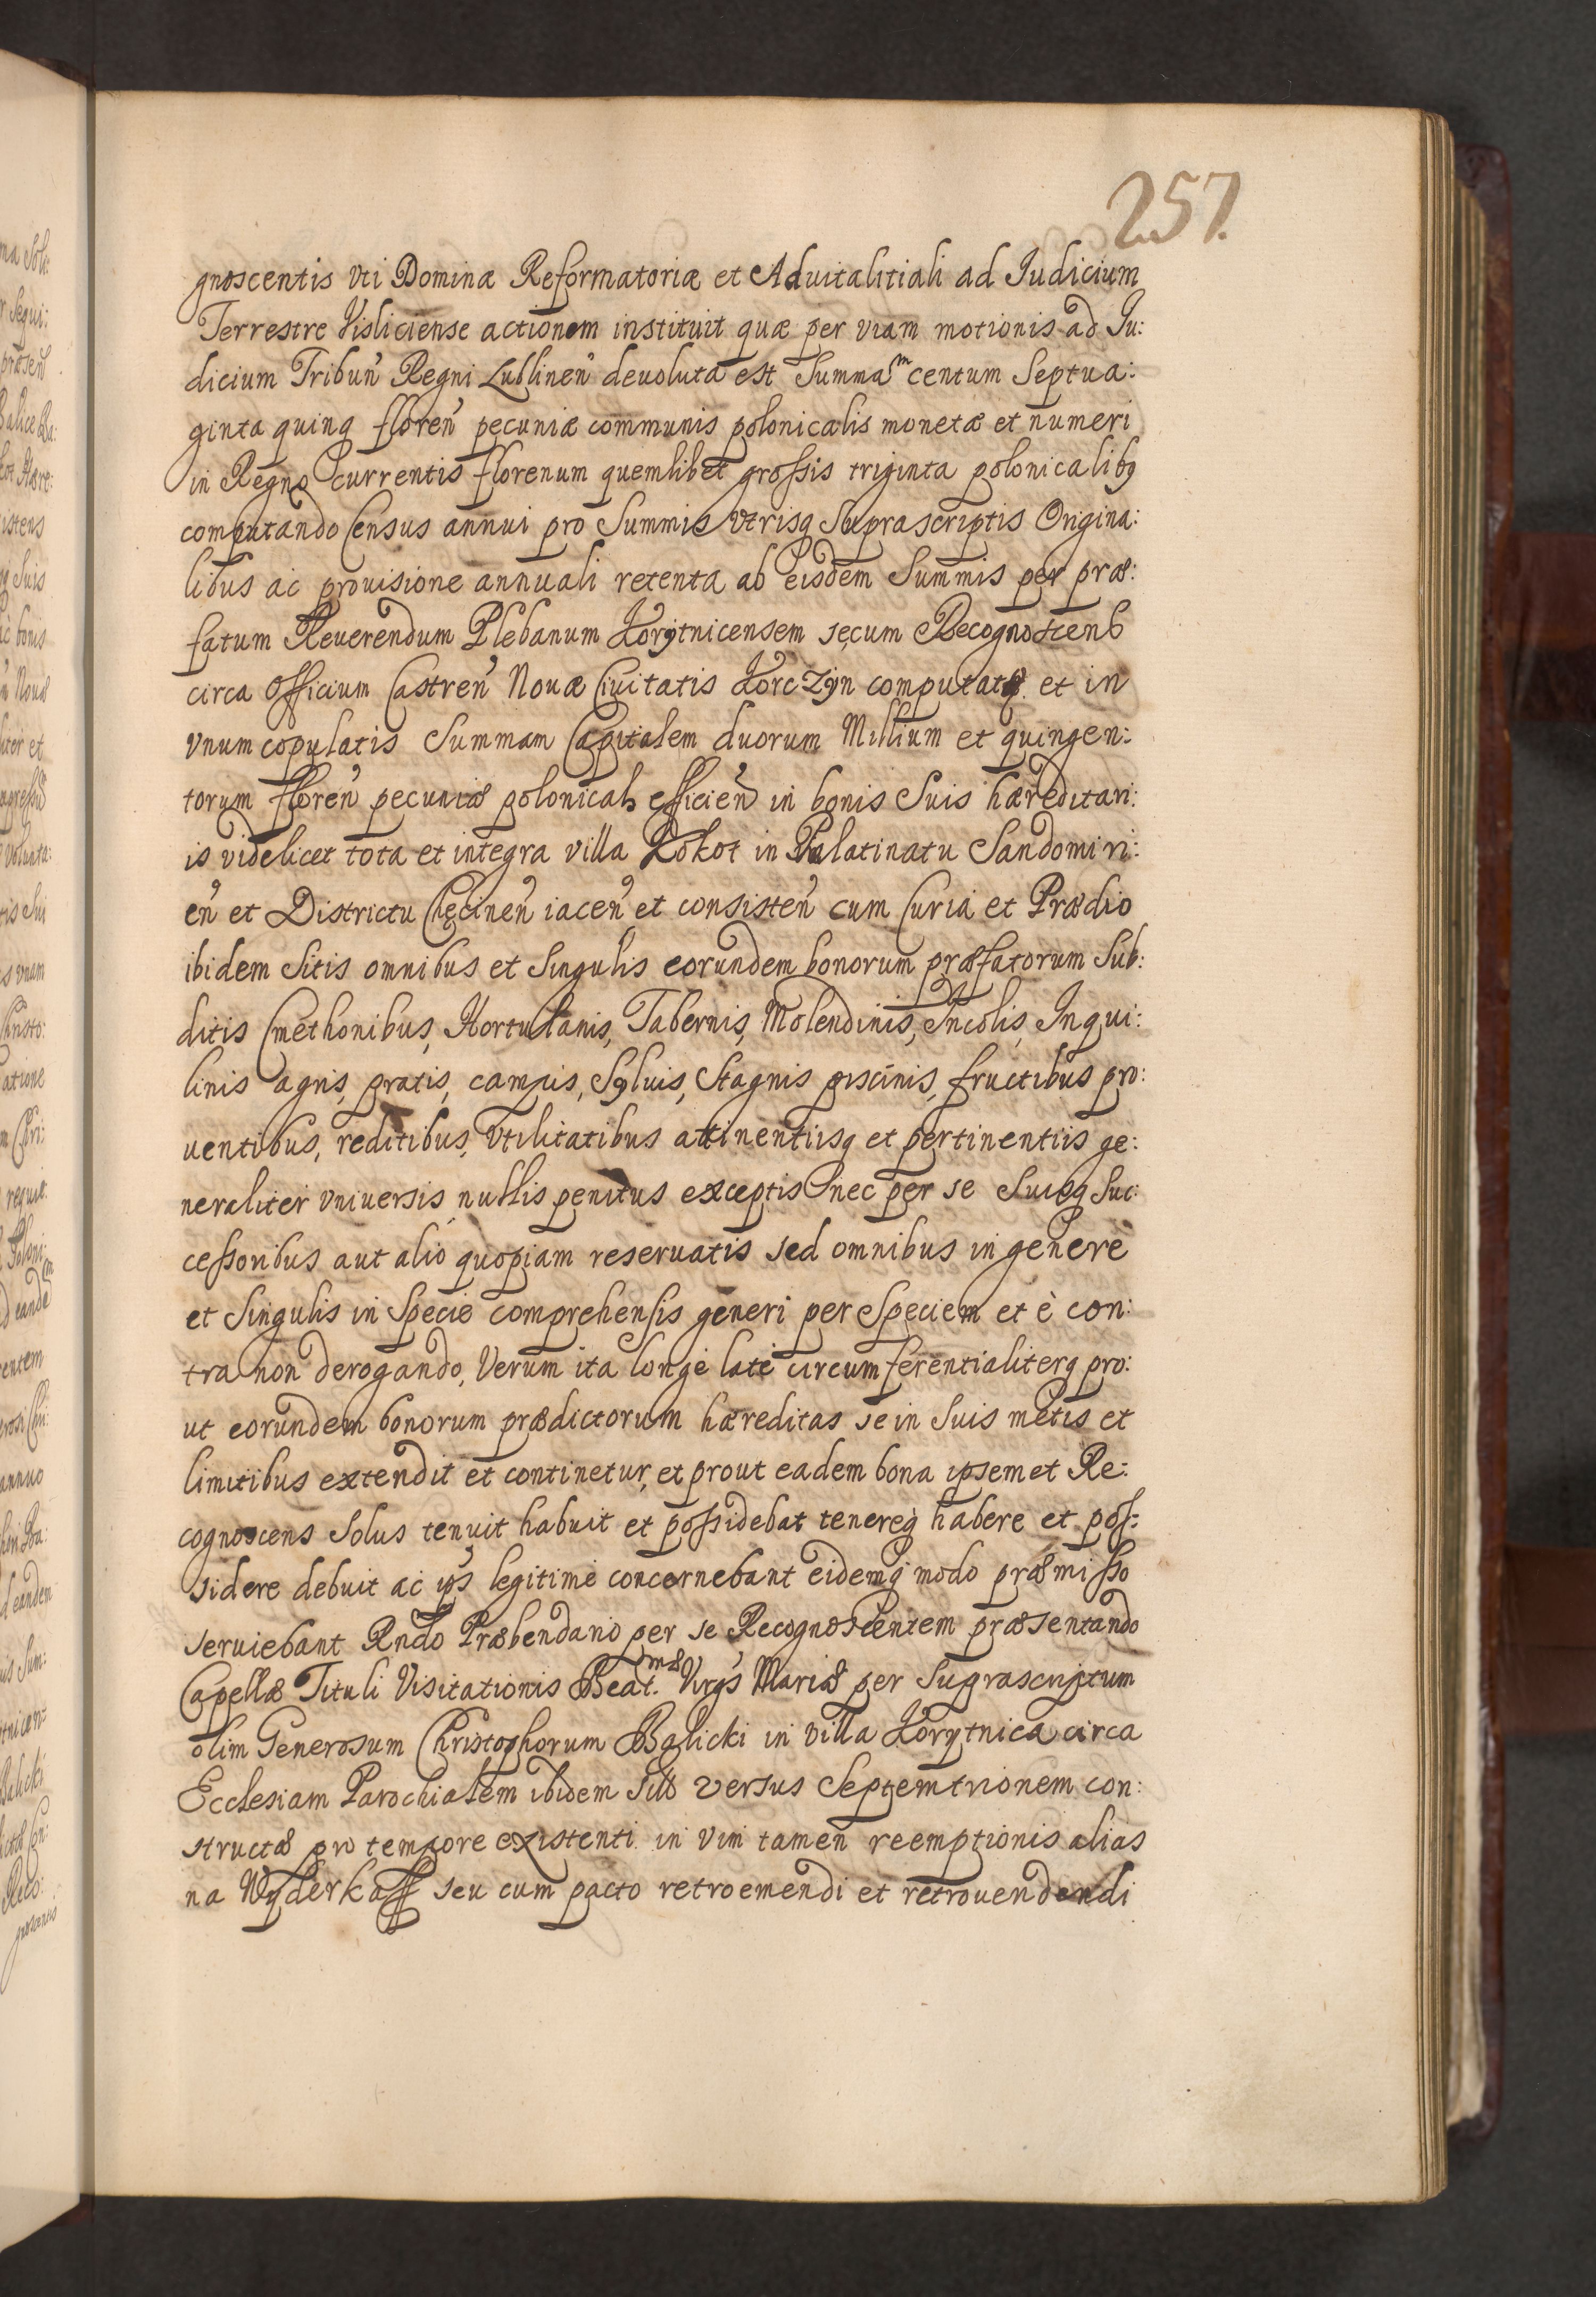 257.
gnoscentis vti Dominæ Reformatoriæ et Aduitalitiali ad Iudicium
Terrestre Visliciense actionem instituit quæ per viam motionis ad Iu:
dicium Tribuñ Regni Lublineñ deuoluta est Summaᵐ centum Septua:
ginta quinq floreñ pecuniæ communis polonicalis monetæ et numeri
in Regno currentis florenum quemlibet grossis triginta polonicalibꝫ
computando Census annui pro Summis vtrisq Suprascriptis Origina:
libus ac prouisione annuali retenta ab eisdem Summis per præ:
fatum Reuerendum Plebanum Korytnicensem secum Recognoscens
circa officium Castreñ Nouæ Ciuitatis Korczyn computatis et in
vnum copulatis Summam Capitalem duorum Millium et quingen:
torum floreñ pecuniæ polonicals efficieñ in bonis Suis hæreditari:
is videlicet tota et integra villa Kokot in Palatinatu Sandomiri:
eñ et Districtu Chęcineñ iaceñ et consisteñ cum Curia et Prædio
ibidem Sitis omnibus et Singulis eorundem bonorum præfatorum Sub:
ditis Cmethonibus, Hortulanis, Tabernis, Molendinis, Incolis, Inqui:
linis agris, pratis, campis, Syluis, Stagnis piscinis, fructibus pro:
uentibus, reditibus, vtilitatibus attinentiisq et pertinentiis ge:
neraliter vniuersis nullis penitus exceptis nec per se Suisq Suc:
cessoribus aut alio quopiam reseruatis sed omnibus in genere
et Singulis in Specie comprehensis generi per Speciem et è con:
tra non derogando, Verum ita longe late circumferentialiterq pro:
ut eorundem bonorum prædictorum hæreditas se in Suis metis et
limitibus extendit et continetur, et prout eadem bona ipsemet Re:
cognoscens Solus tenuit habuit et possidebat tenereq habere et pos:
sidere debuit ac ips̃ legitime concernebant eidemq modo præmisso
seruiebant Rndo Præbendario per se Recognoscentem præsentando
Capellæ Tituli Visitationis Beat.ᵐæ Virgs̃ Mariæ per Suprascriptum
olim Generosum Christophorum Balicki in villa Korytnica circa
Ecclesiam Parochialem ibidem Sito versus Septemtrionem con:
structæ pro tempore existenti in vim tamen reemptionis alias
na Wyderkaff seu cum pacto retroemendi et retrouendendi